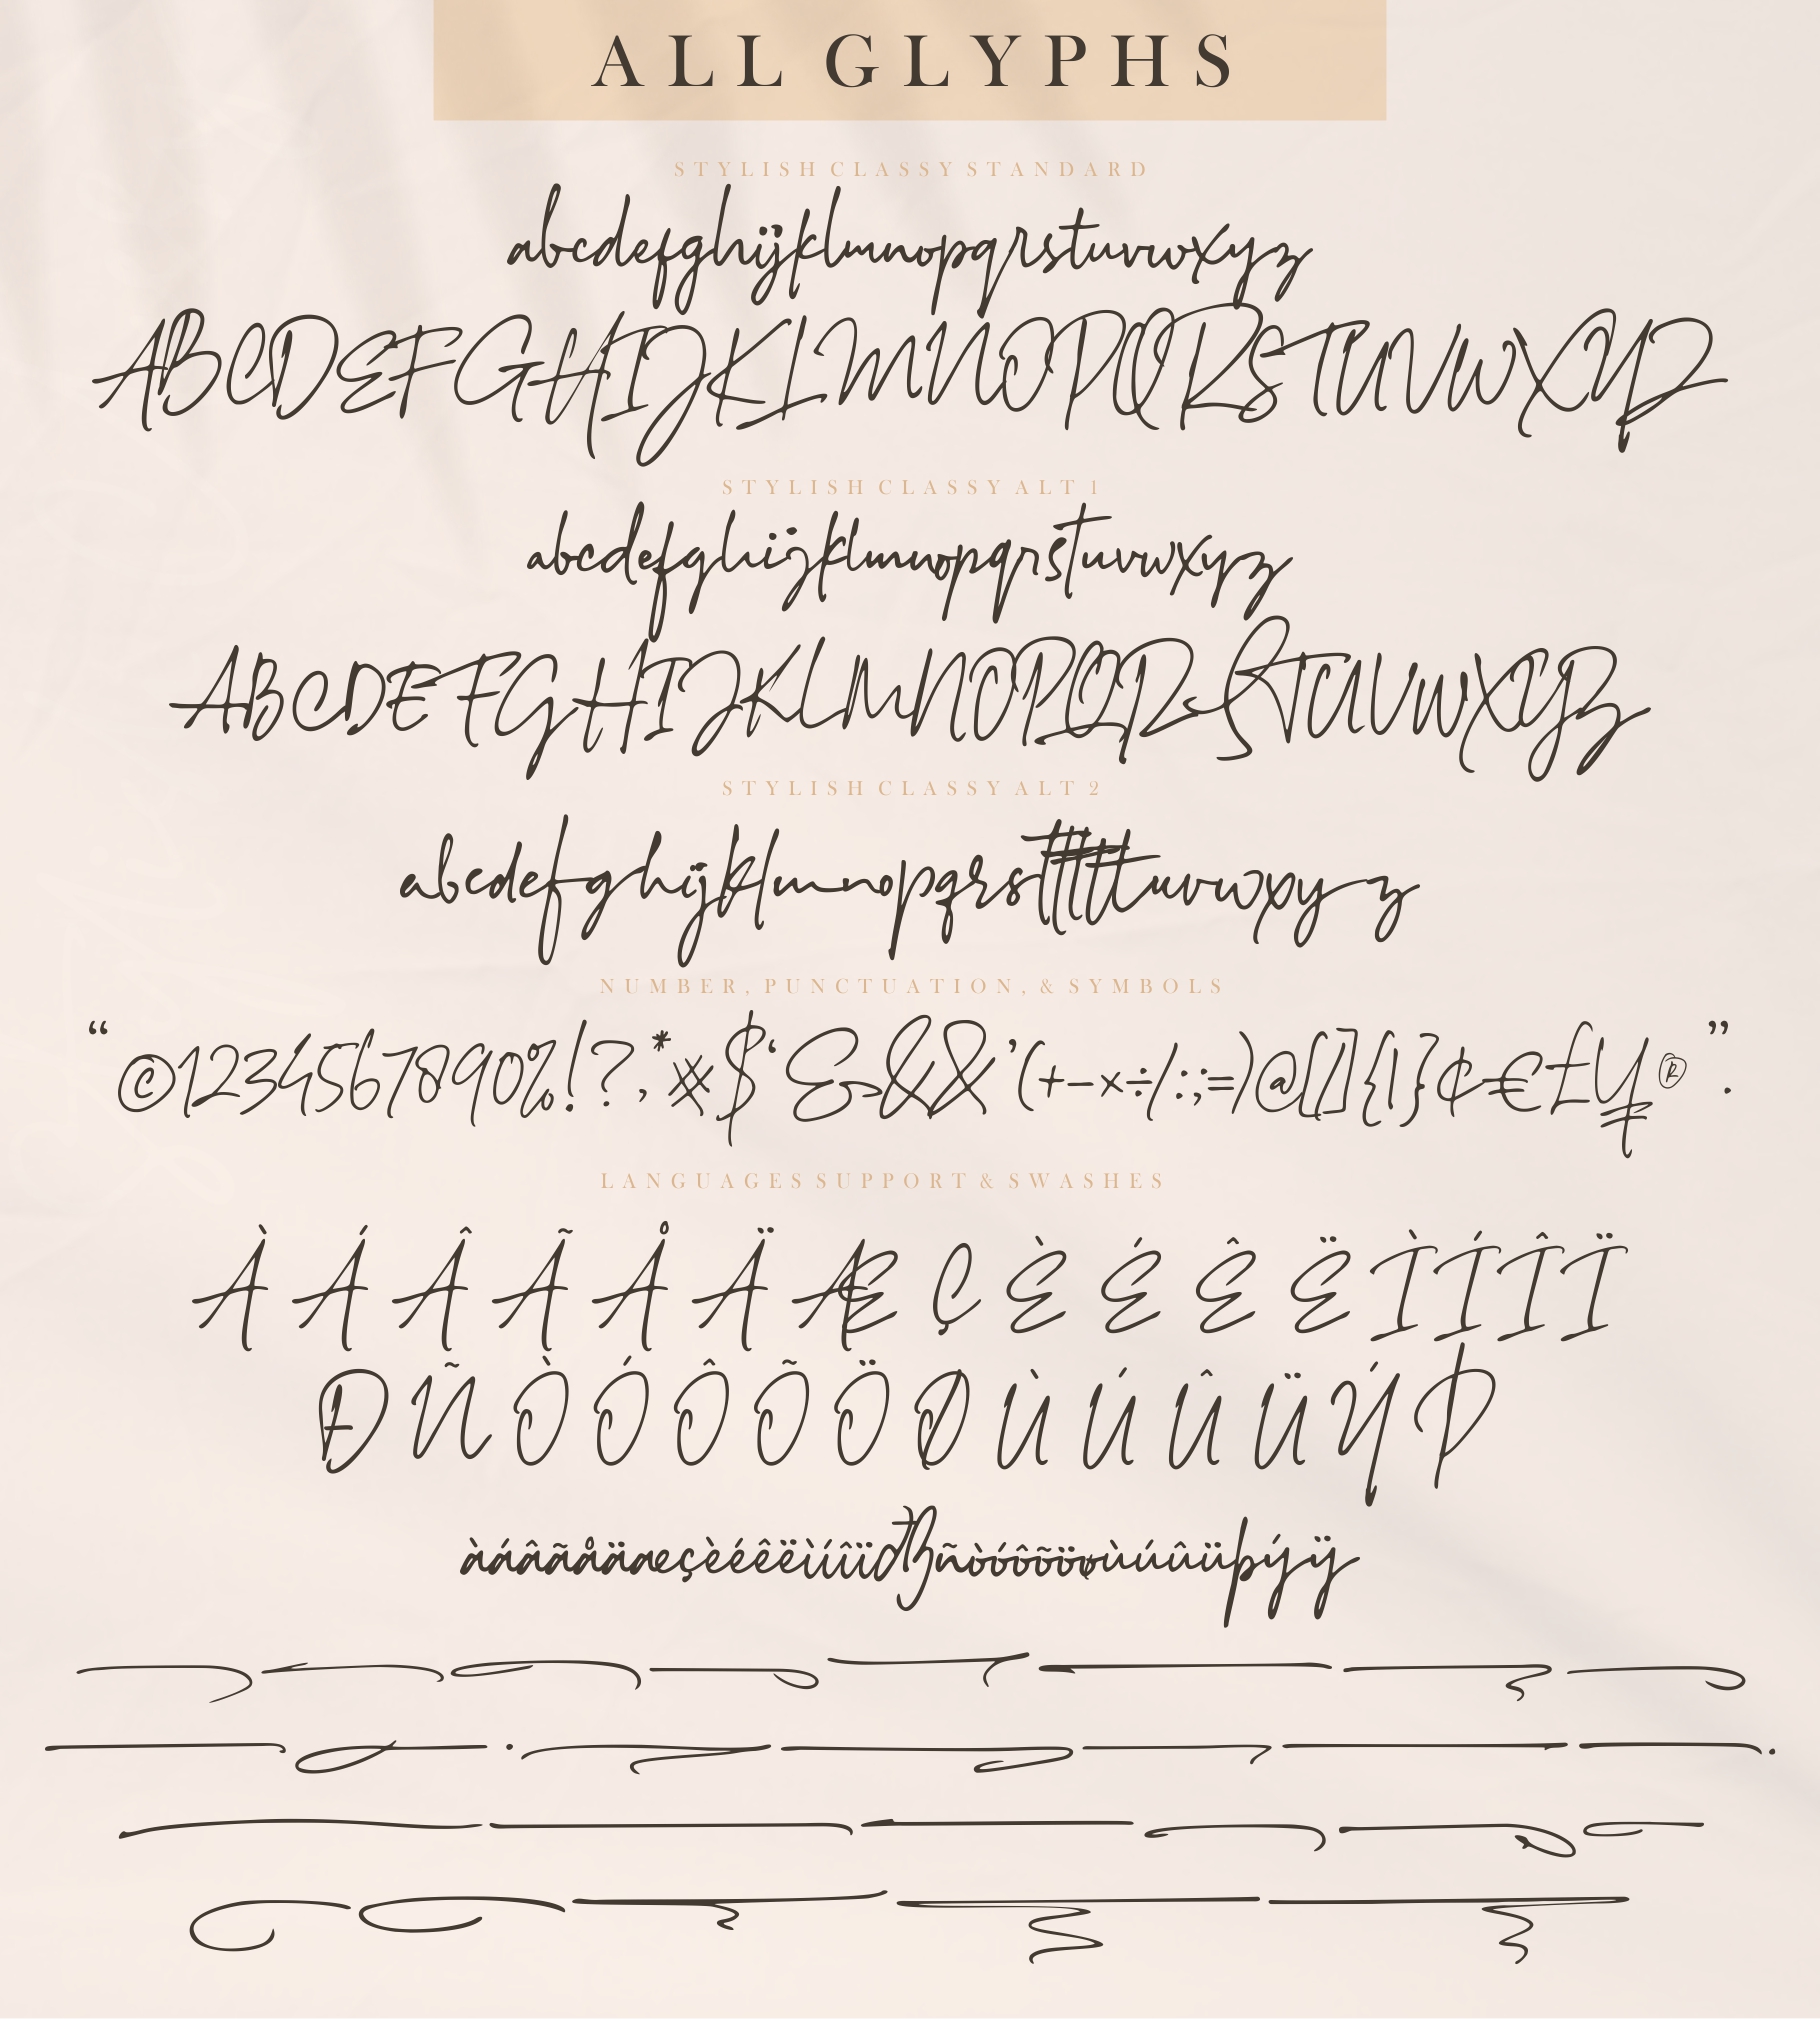 ALL GLYPHS
STYLISH CLASSY STANDARD
abcdefghijklmnopqrstuvwxyz
ABCDEFGHIJKLMNOPQRSTUVWXYZ
STYLISH CLASSY ALT 1
abcdefghijklmnopqrstuvwxyz
ABCDEFGHIJKLMNOPQRSTUVWXYZ
STYLISH CLASSY ALT 2
abcdefghijklmnopqrstttttuvwxyz
NUMBER, PUNCTUATION, & SYMBOLS
“©1234567890%!?,*#$‘&&&’(+−×÷/:;=)@[/]{|}¢€£¥®”.
LANGUAGES SUPPORT & SWASHES
À Á Â Ã Å Ä Æ Ç È É Ê Ë Ì Í Î Ï
Ð Ñ Ò Ó Ô Õ Ö Ø Ù Ú Û Ü Ý Þ
àáâãåäæçèéêëìíîïðßñòóôõöøùúûüþýÿ